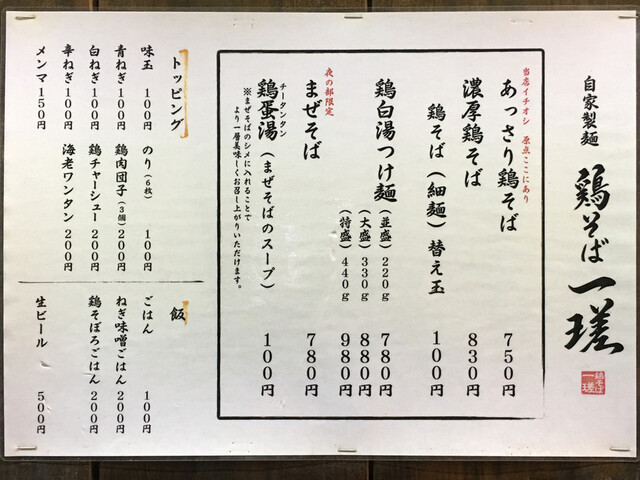 自家製麺
鶏そば一瑳
鶏そば
一瑳
当店イチオシ 原点ここにあり
あっさり鶏そば 750円
濃厚鶏そば 830円
鶏そば（細麺）替え玉 100円
鶏白湯つけ麺（並盛）220g 780円
（大盛）330g 880円
（特盛）440g 980円
夜の部限定
まぜそば 780円
チータンタン
鶏蛋湯（まぜそばのスープ） 100円
※まぜそばのシメに入れることで
より一層美味しくお召し上がりいただけます。
トッピング
味玉 100円
のり（6枚） 100円
青ねぎ 100円
鶏肉団子（3個）200円
白ねぎ 100円
鶏チャーシュー 200円
辛ねぎ 100円
海老ワンタン 200円
メンマ 150円
飯
ごはん 100円
ねぎ味噌ごはん 200円
鶏そぼろごはん 200円
生ビール 500円